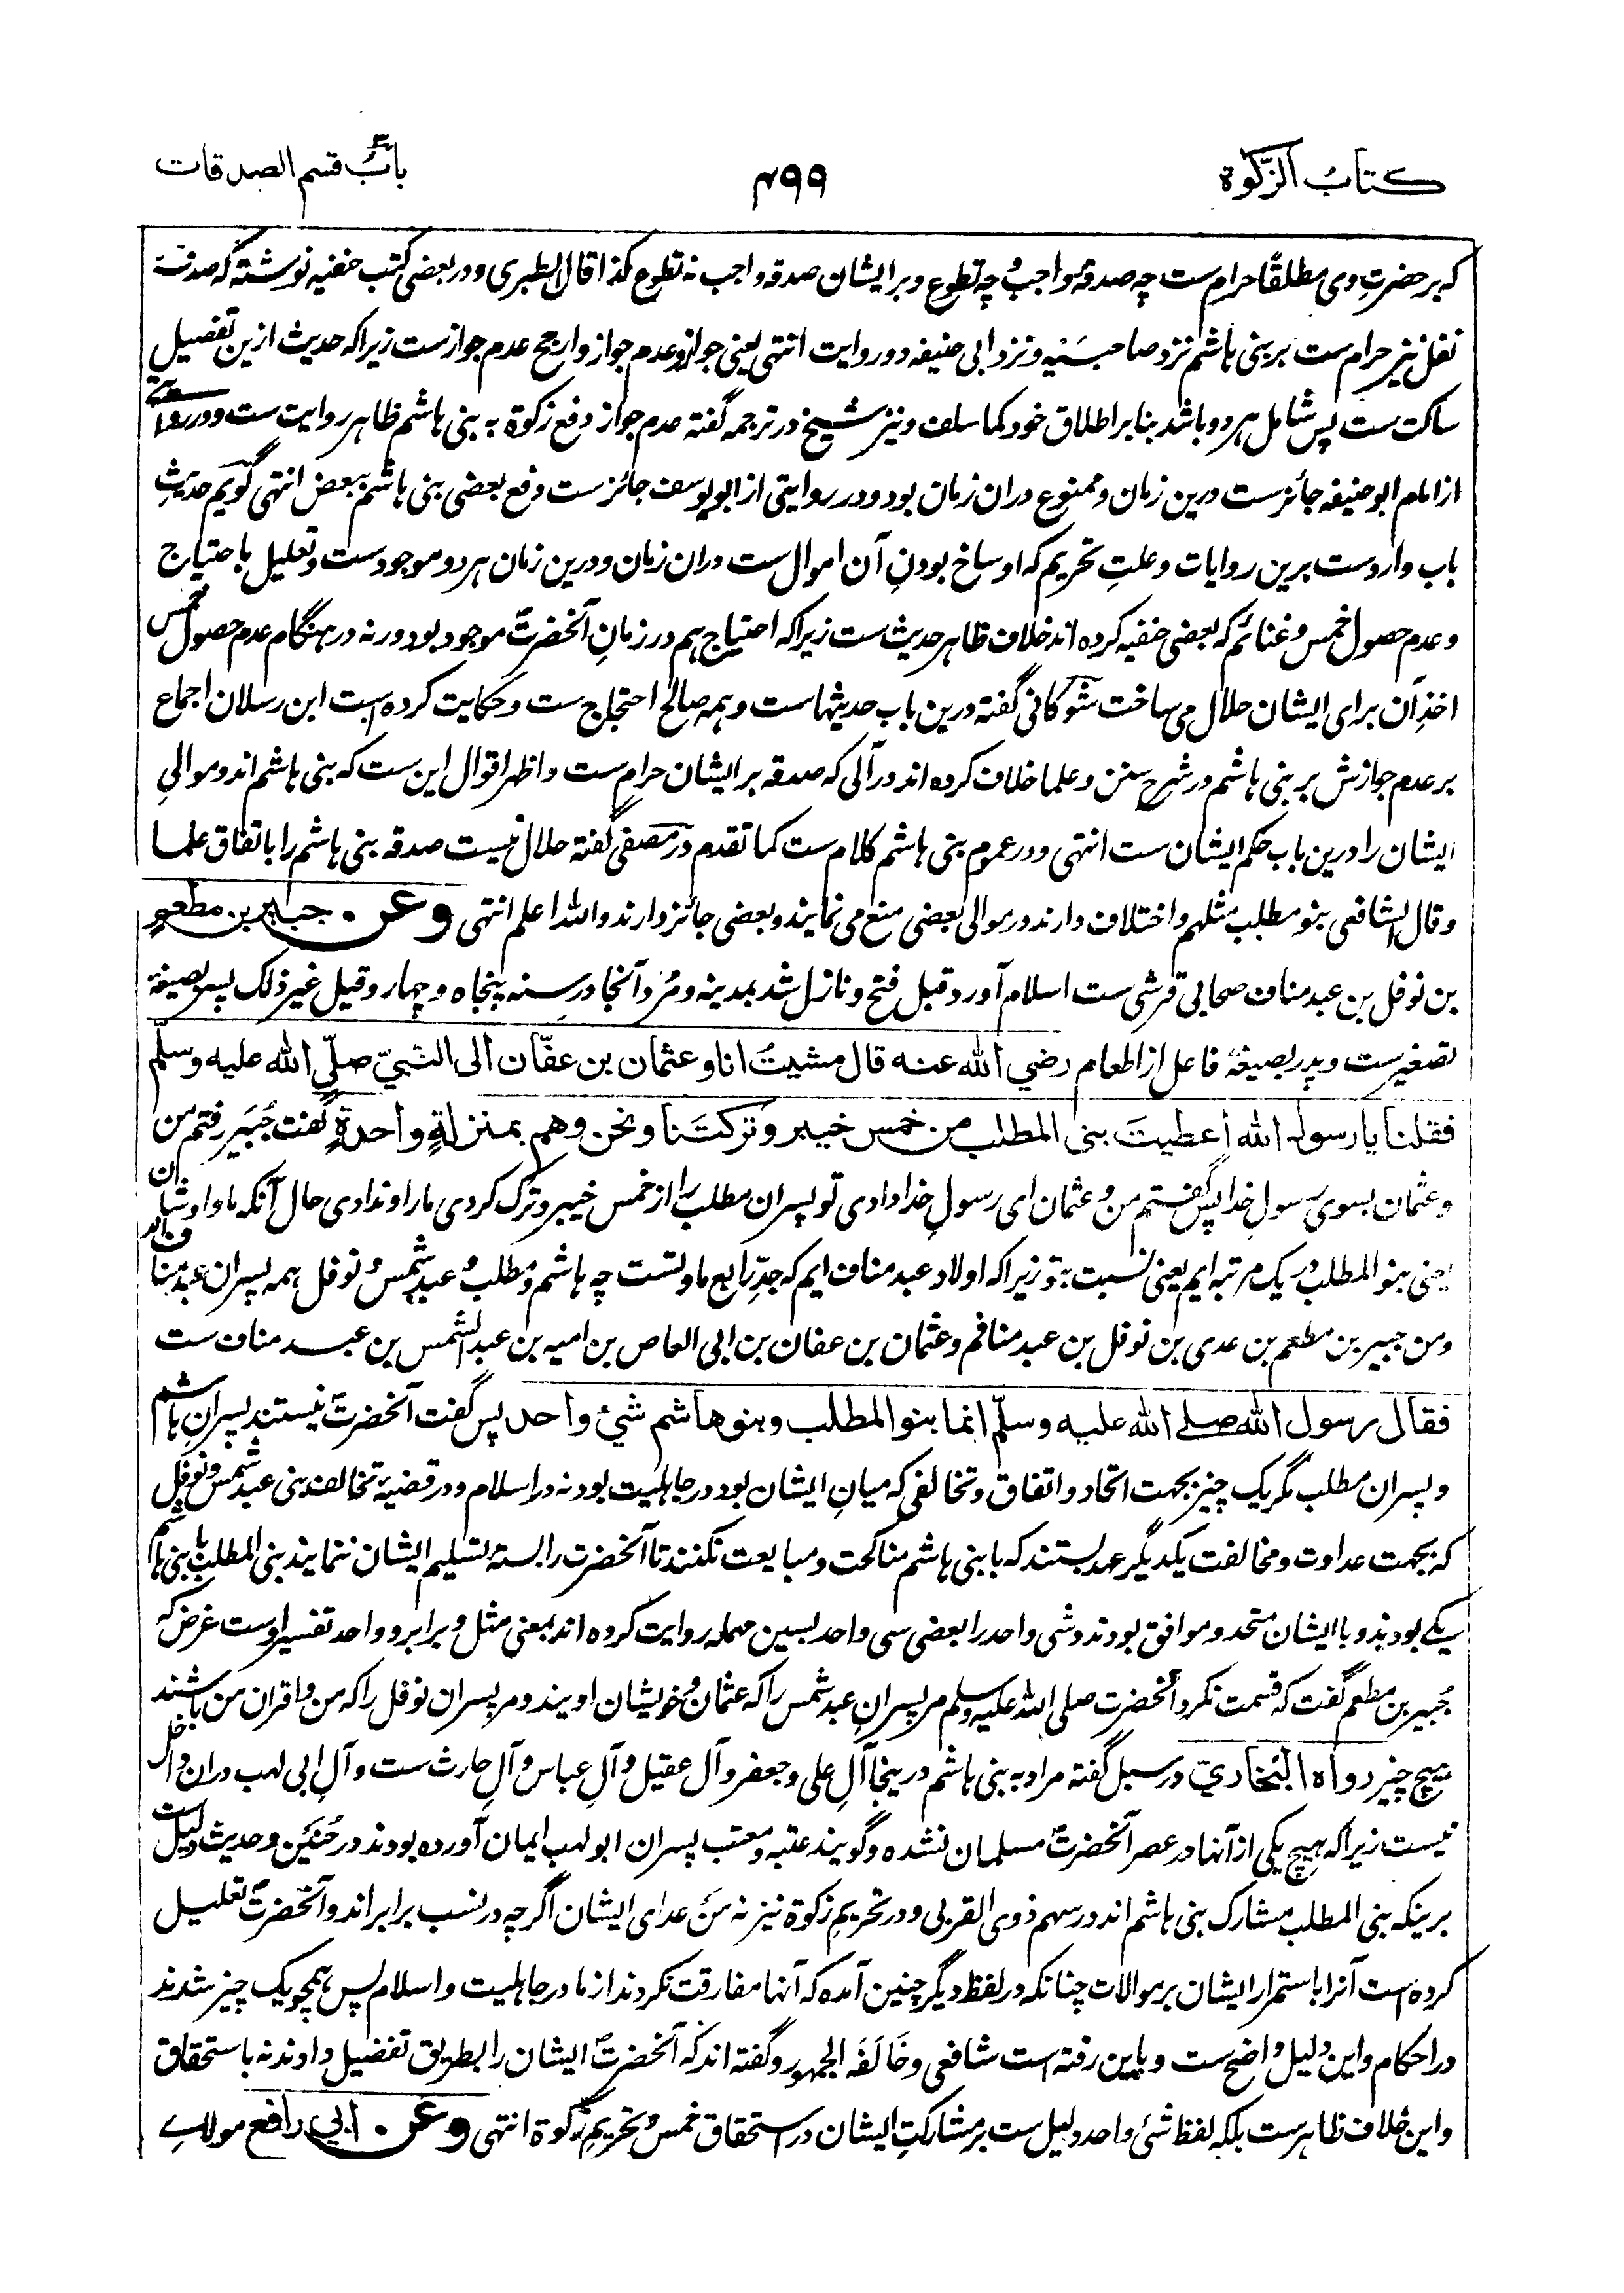 کتابُ الزّکوة
۴۹۹
بابُ قسم الصدقات
که بر حضرتِ وی مطلقًا حرام ست چه صدقهٔ واجب و چه تطوع و بر ایشان صدقه واجب نه تطوع کذا قال الطبری و در بعضی کتب حنفیه نوشته که صدقت
نفل نیز حرام ست بر بنی هاشم نزد صاحبَیْه و نزد ابی حنیفه دو روایت انتهی یعنی جواز و عدم جواز و ارجح عدم جواز ست زیرا که حدیث ازین تفصیل
ساکت ست پس شامل هر دو باشد بنا بر اطلاق خود کما سلف و نیز شیخ در ترجمه گفته عدم جواز دفع زکوة به بنی هاشم ظاهر روایت ست و در روایتے
از امام ابو حنیفه جائز ست درین زمان و ممنوع دران زمان بود و در روایتی از ابو یوسف جائز ست دفع بعضی بنی هاشم ببعض انتهی گویم حدیثِ
باب وارد ست برین روایات و علتِ تحریم که اوساخ بودنِ آن اموال ست دران زمان و درین زمان هر دو موجود ست و تعلیل باحتیاج
و عدم حصول خمس و غنائم که بعضی حنفیه کرده اند خلاف ظاهر حدیث ست زیرا که احتیاج هم در زمانِ آنحضرتؐ موجود بود ورنه در هنگام عدم حصول خمس
اخذِ آن برای ایشان حلال می ساخت شوکانی گفته درین باب حدیثهاست و همه صالح احتجاج ست و حکایت کرده است ابن رسلان اجماع
بر عدم جوازش بر بنی هاشم در شرح سنن و علما خلاف کرده اند در آلی که صدقه بر ایشان حرام ست و اظهر اقوال این ست که بنی هاشم اند و موالیِ
ایشان را درین باب حکم ایشان ست انتهی و در عموم بنی هاشم کلام ست کما تقدم در مصفی گفته حلال نیست صدقه بنی هاشم را باتفاق علما
و قال الشافعی بنو مطلب مثلهم و اختلاف دارند در موالی بعضی منع می نمایند و بعضی جائز دارند والله اعلم انتهی وعن جبیر بن مطعمٍ
بن نوفل بن عبد مناف صحابی قرشی ست اسلام آورد قبل فتح و نازل شد بمدینه و مُرد آنجا در سنه پنجاه و چهار و قیل غیر ذلک پسر بصیغهٔ
تصغیر ست و پدر بصیغهٔ فاعل از اطعام رضي الله عنه قال مشیتُ انا و عثمان بن عفّان الی النبيّ صلّی الله علیه وسلّم
فقلنا یا رسول الله أعطیتَ بنی المطلب من خمس خیبر وتركتَنا ونحن وهم بمنزلةٍ واحدةٍ گفت جُبَیر رفتم من
و عثمان بسوی رسولِ خدا پس گفتم من و عثمان ای رسولِ خدا دادی تو پسران مطلب را از خمس خیبر و ترک کردی ما را و ندادی حال آنکه ما و اوشان
یعنی بنو المطلب در یک مرتبه ایم یعنی نسبت بتو زیرا که اولاد عبد مناف ایم که جدِّ رابع ما و تست چه هاشم و مطلب و عبد شمس و نوفل همه پسران عبد مناف اند
و من جبیر بن مطعم بن عدی بن نوفل بن عبد منافم و عثمان بن عفان بن ابی العاص بن امیه بن عبد الشمس بن عبد مناف ست
فقال رسول الله صلے الله علیه وسلّم انما بنو المطلب وبنو هاشم شيئ واحد پس گفت آنحضرتؐ نیستند پسرانِ هاشم
و پسران مطلب مگر یک چیز بجهت اتحاد و اتفاق و تخالفی که میانِ ایشان بود در جاهلیت بود نه در اسلام و در قضیهٔ تخالف بنی عبد شمس و نوفل
که بجهت عداوت و مخالفت یکدیگر عهد بستند که با بنی هاشم مناکحت و مبایعت نکنند تا آنحضرت را بستهٔ تسلیم ایشان ننمایند بنی المطلب با بنی هاشم
یکے بودند و با ایشان متحد و موافق بودند و شی واحد را بعضی سی واحد بسین مهمله روایت کرده اند بمعنی مثل و برابر و واحد تفسیر اوست غرض که
جُبیر بن مطعم گفت که قسمت نکرد آنحضرت صلی الله علیه وسلم مر پسرانِ عبد شمس را که عثمان و خویشان اویند و مر پسران نوفل را که من و اقران من باشند
هیچ چیز رواه البُخاريّ در سبل گفته مراد به بنی هاشم درینجا آلِ علی و جعفر و آل عقیل و آلِ عباس و آلِ حارث ست و آلِ ابی لهب دران داخل
نیست زیرا که هیچ یکی از آنها در عصر آنحضرتؐ مسلمان نشده و گویند عتبه و معتب پسران ابو لهب ایمان آورده بودند در حُنَیْن و حدیث دلیل ست
برینکه بنی المطلب مشارک بنی هاشم اند در سهم ذوی القربی و در تحریمِ زکوة نیز نه مَن عدای ایشان اگرچه در نسب برابر اند و آنحضرتؐ تعلیل
کرده است آنرا باستمرار ایشان بر موالات چنانکه در لفظ دیگر چنین آمده که آنها مفارقت نکردند از ما در جاهلیت و اسلام پس همچو یک چیز شدند
در احکام و این دلیل واضح ست و باین رفته است شافعی و خَالَفَه الجمهور و گفته اند که آنحضرتؐ ایشان را بطریق تفضیل دادند نه باستحقاق
و این خلاف ظاهر ست بلکه لفظ شئ واحد دلیل ست بر مشارکتِ ایشان در استحقاق خمس و تحریمِ زکوة انتهی وعن ابي رافع مولاے